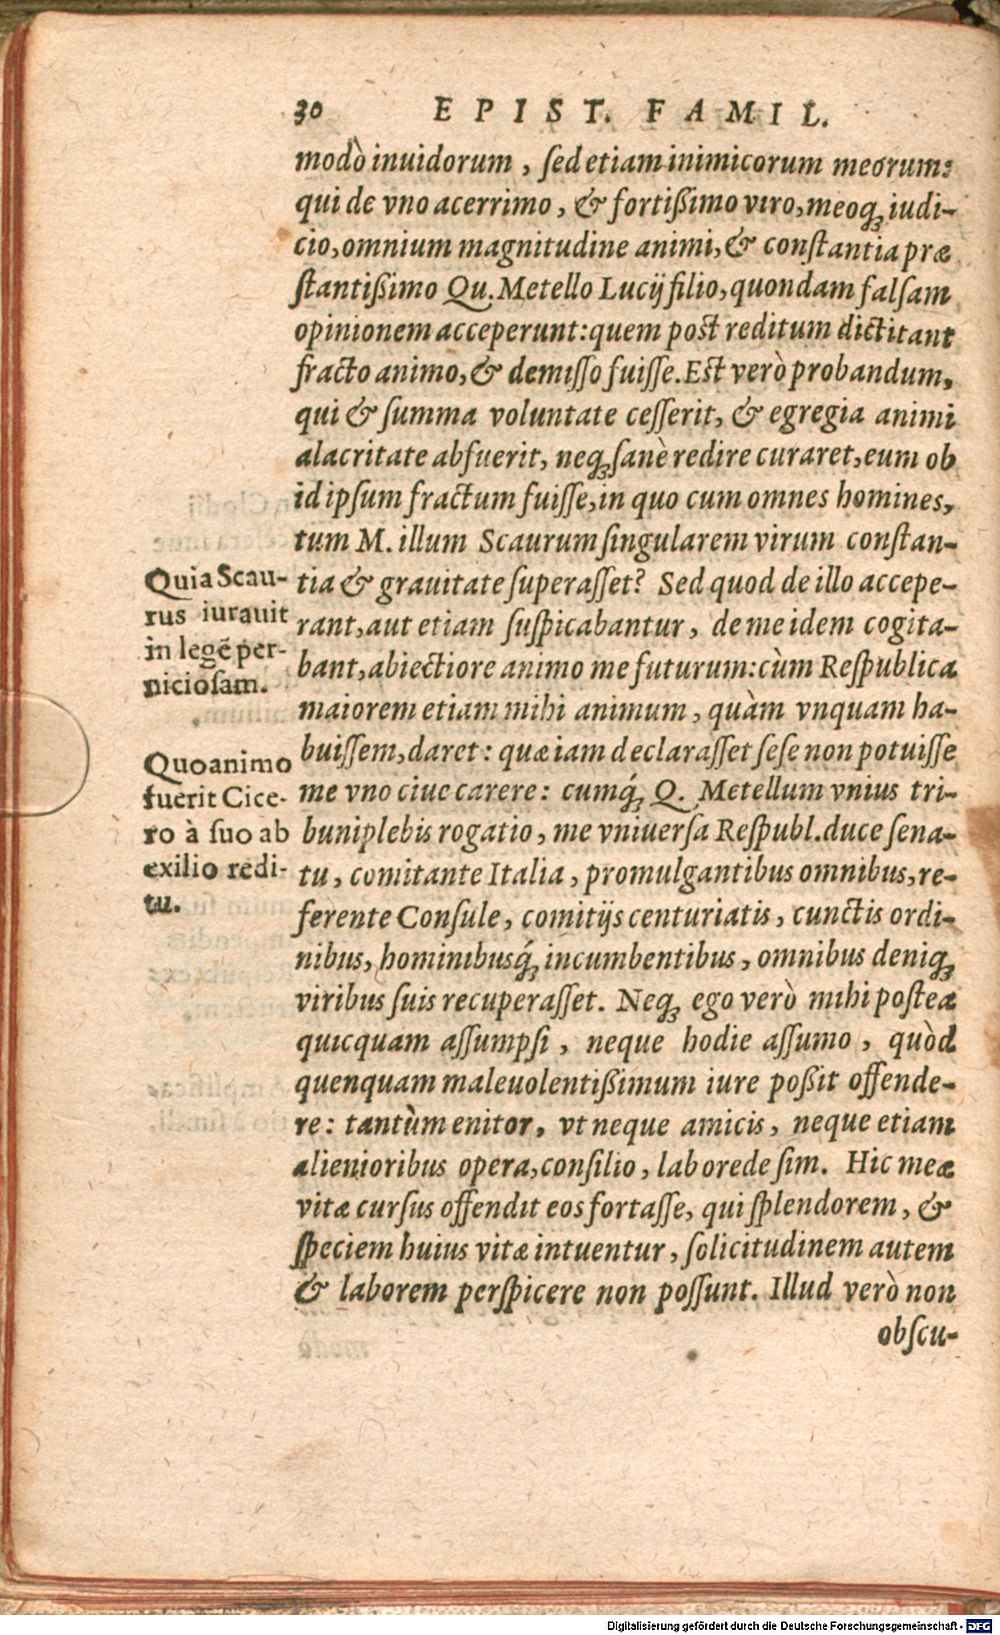 30 EPIST. FAMIL.
modò inuidorum, sed etiam inimicorum meorum:
qui de vno acerrimo, & fortißimo viro, meoq́ue iudi-
cio, omnium magnitudine animi, & constantia præ
stantißimo Qu. Metello Lucij filio, quondam falsam
opinionem acceperunt: quem post reditum dictitant
fracto animo, & demisso fuisse. Est verò probandum,
qui & summa voluntate cesserit, & egregia animi
alacritate abfuerit, neq; sanè redire curaret, eum ob
id ipsum fractum fuisse, in quo cum omnes homines,
tum M. illum Scaurum singularem virum constan-
tia & grauitate superasset? Sed quod de illo accepe-
rant, aut etiam suspicabantur, de me idem cogita-
bant, abiectiore animo me futurum: cùm Respublica
maiorem etiam mihi animum, quàm vnquam ha-
buissem, daret: quæ iam declarasset sese non potuisse
me vno ciue carere: cumq́; Q. Metellum vnius tri-
buni plebis rogatio, me vniuersa Respubl. duce sena-
tu, comitante Italia, promulgantibus omnibus, re-
ferente Consule, comitijs centuriatis, cunctis ordi-
nibus, hominibusq́; incumbentibus, omnibus deniq;
viribus suis recuperasset. Neq; ego verò mihi posteà
quicquam assumpsi, neque hodie assumo, quòd
quenquam maleuolentißimum iure poßit offende-
re: tantùm enitor, vt neque amicis, neque etiam
alienioribus opera, consilio, labore desim. Hic meæ
vitæ cursus offendit eos fortasse, qui splendorem, &
speciem huius vitæ intuentur, solicitudinem autem
& laborem perspicere non possunt. Illud verò non
obscu-
Quia Scau-
rus iurauit
in legẽ per-
niciosam.
Quo animo
fuerit Cice-
ro à suo ab
exilio redi-
tu.
Digitalisierung gefördert durch die Deutsche Forschungsgemeinschaft - DFG